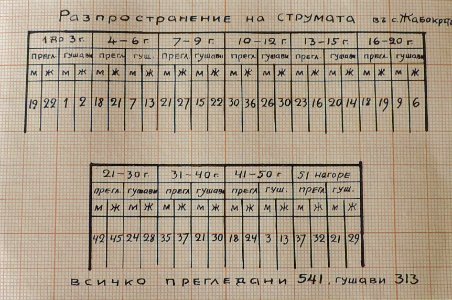 Разпространение на струмата въ с. Жабокрѫтъ
1 до 3 г. 4–6 г. 7–9 г. 10–12 г. 13–15 г. 16–20 г.
прегл. гушави прегл. гуш. прегл. гушави прегл. гушави прегл. гушави прегл. гушави
м ж м ж м ж м ж м ж м ж м ж м ж м ж м ж м ж м ж
19 22 1 2 18 21 7 13 21 27 15 22 30 36 26 30 23 16 20 14 18 19 9 6
21–30 г. 31–40 г. 41–50 г. 51 нагоре
прегл. гушави прегл. гушави прегл. гуш. прегл. гуш.
м ж м ж м ж м ж м ж м ж м ж м ж
42 45 24 28 35 37 21 30 18 24 3 13 37 32 21 29
всичко прегледани 541, гушави 313